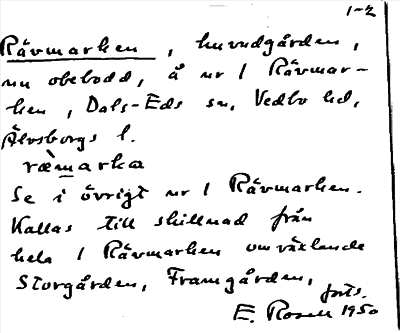 1-2
Rävmarken, huvudgården,
nu obebodd, å nr 1 Rävmar-
ken, Dals-Eds sn, Vedbo hd,
Älvsborgs l.
ræ̀marka
Se i övrigt nr 1 Rävmarken.
Kallas till skillnad från
hela 1 Rävmarken omväxlande
Storgården, Framgården,
forts.
E. Rosell 1950